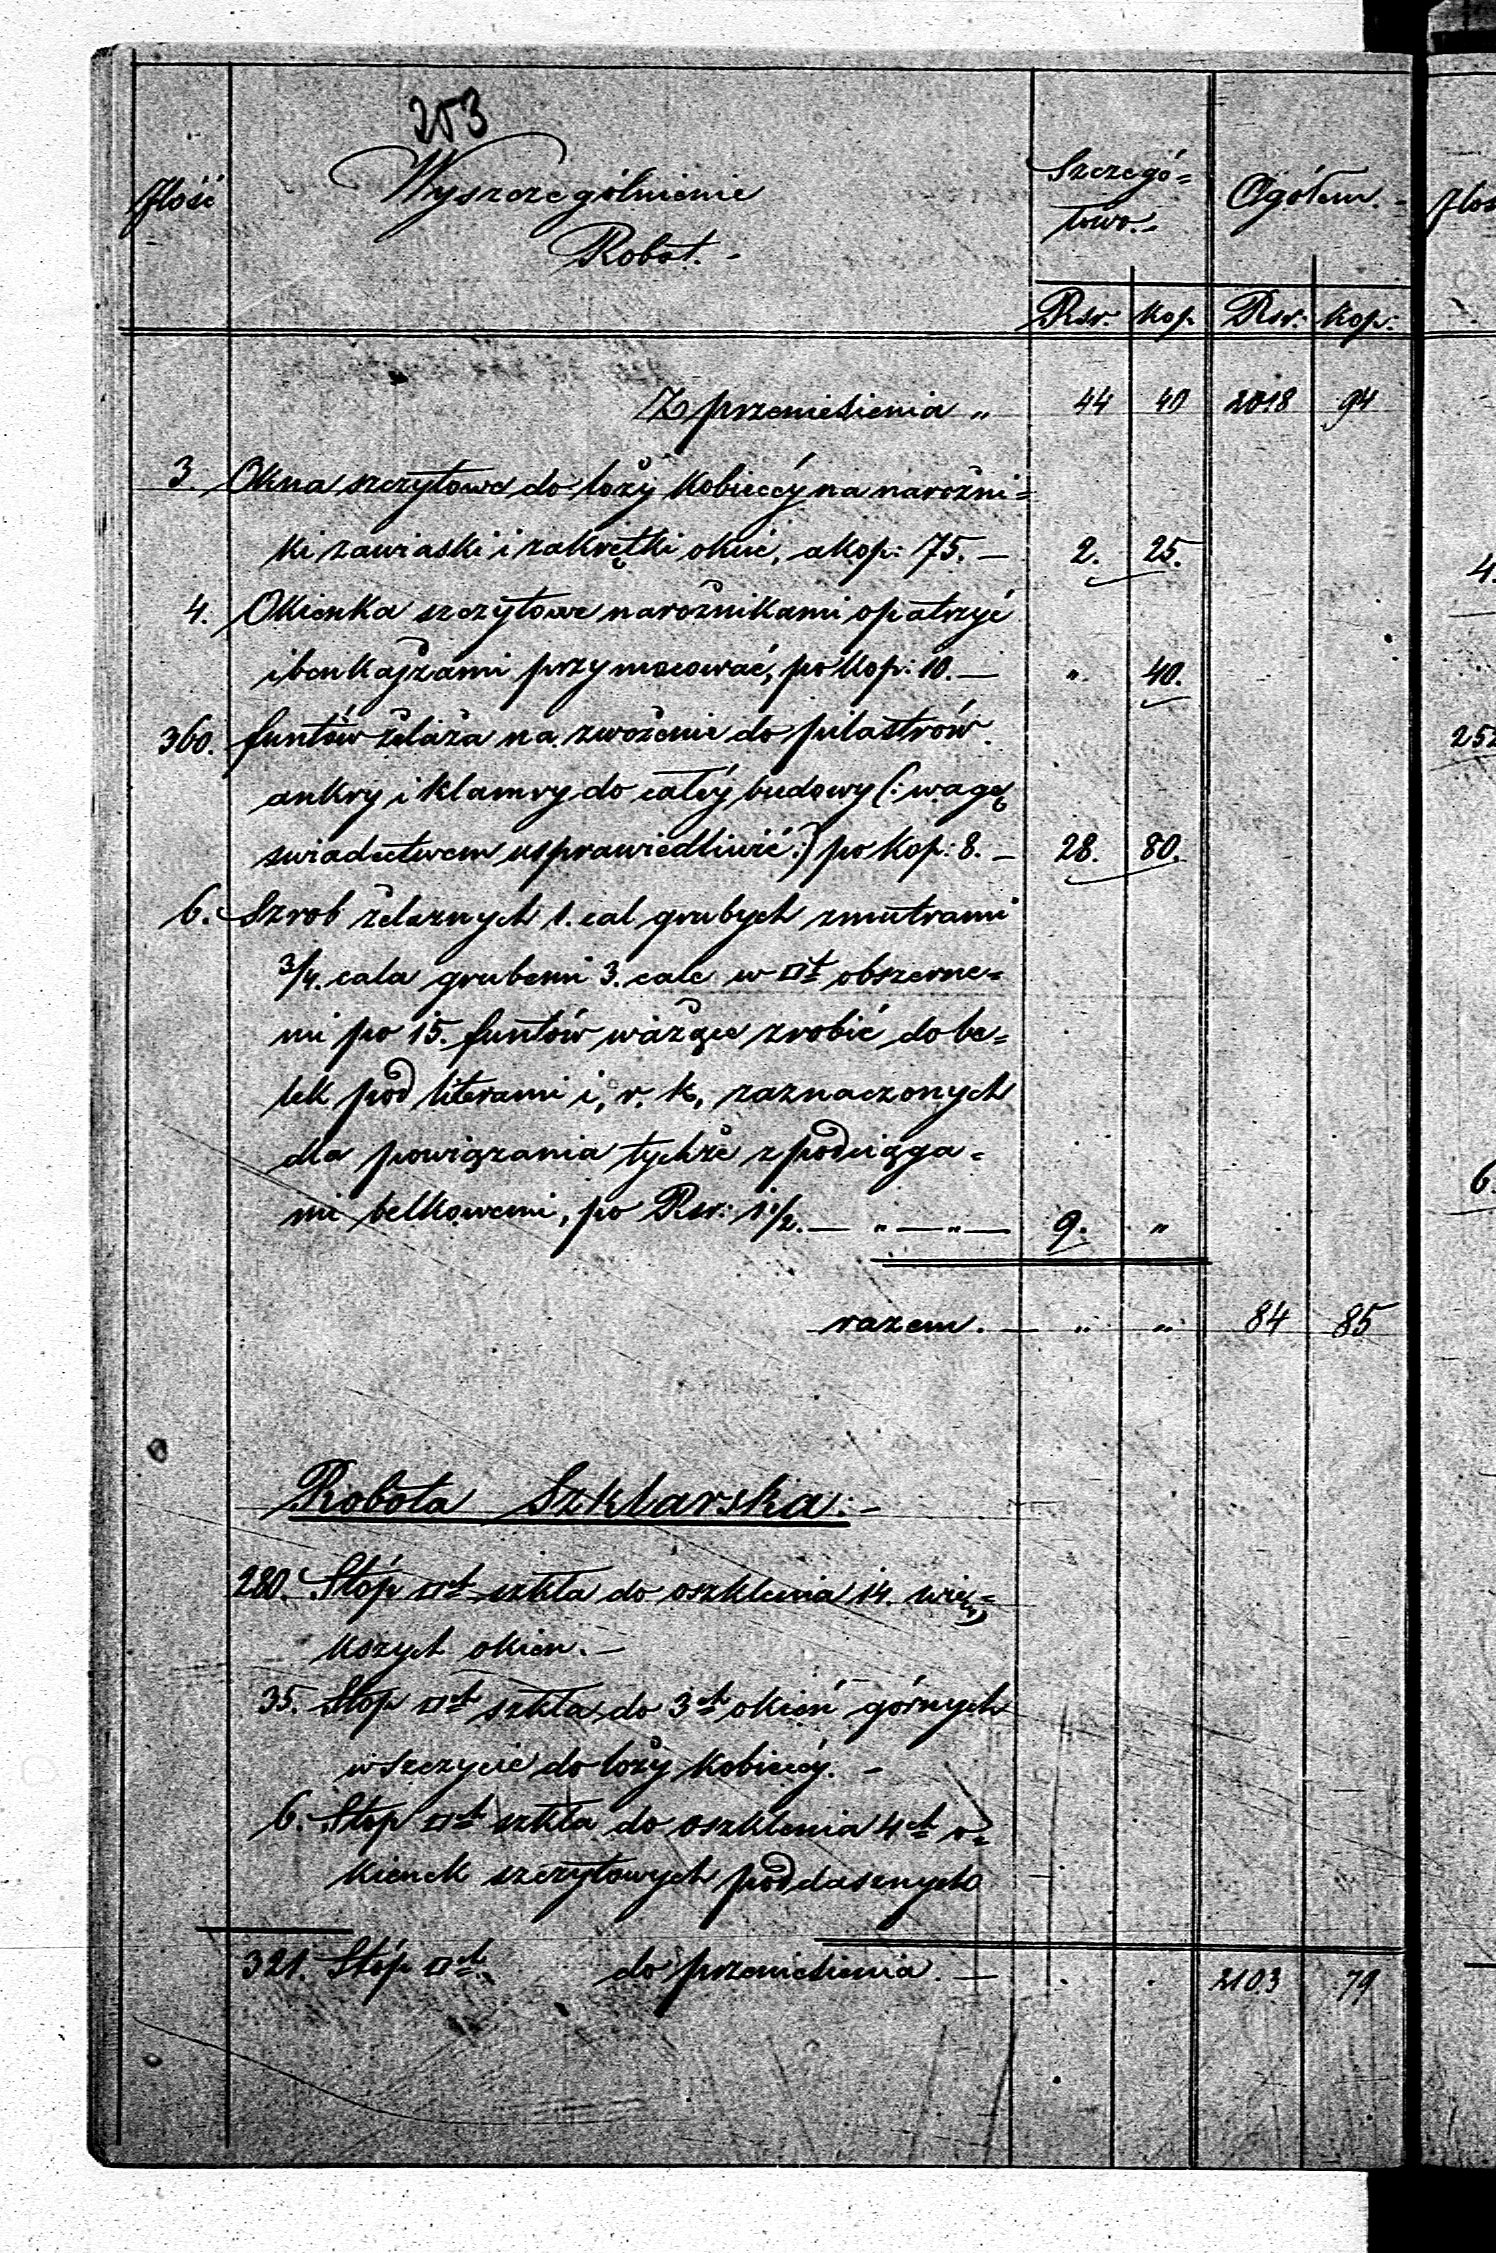 253
Jlość Wyszczególnienie Robot. - Szczegó= Ogółem. -
łowo. -
Rsr. Kop. Rsr: Kop:
Z przeniesienia „ 44 40 2018 94
3. Okna szczytowe do loży Kobiecéy na narożni=
ki zawiaski i zakrętki okuć, a kop: 75. — 2. 25.
4. Okienka szczytowe narożnikami opatrzyć
i benkajzami przymocować, po Kop: 10. — „ 40.
360. funtów żelaza na zwożenie do pilastrów
ankry i klamry do całéy budowy (: wagę
swiadectwem usprawiedliwić :) po Kop: 8. — 28. 80.
6. Szrob żelaznych 1. cal grubych z mutrami
3/4. cala grubemi 3. cale w □t obszerne=
mi po 15. funtów ważące zrobić do be=
lek pod literami i, r. k, zaznaczonych
dla powiązania tychże z podciąga=
mi belkowemi, po Rsr: 1 1/2. — „ — „ — 9. „
razem. — „ „ 84 85
Robota Szklarska: -
280. Stóp □t szkła do oszklenia 14. wię=
kszych okien. —
35. Stóp □t szkła do 3ch okień górnych
w szczycie do loży Kobiecéy. -
6. Stóp □t szkła do oszklenia 4ch o=
kienek szczytowych poddasznych
321. Stóp □t. do przeniesienia. — . . 2103 79
Jloś
4.
252
6.